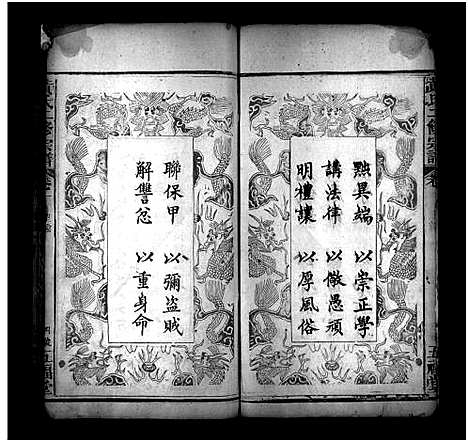 黜異端　以崇正學
講法律　以儆愚頑
明禮讓　以厚風俗
聯保甲　以彌盜賊
解讐忿　以重身命